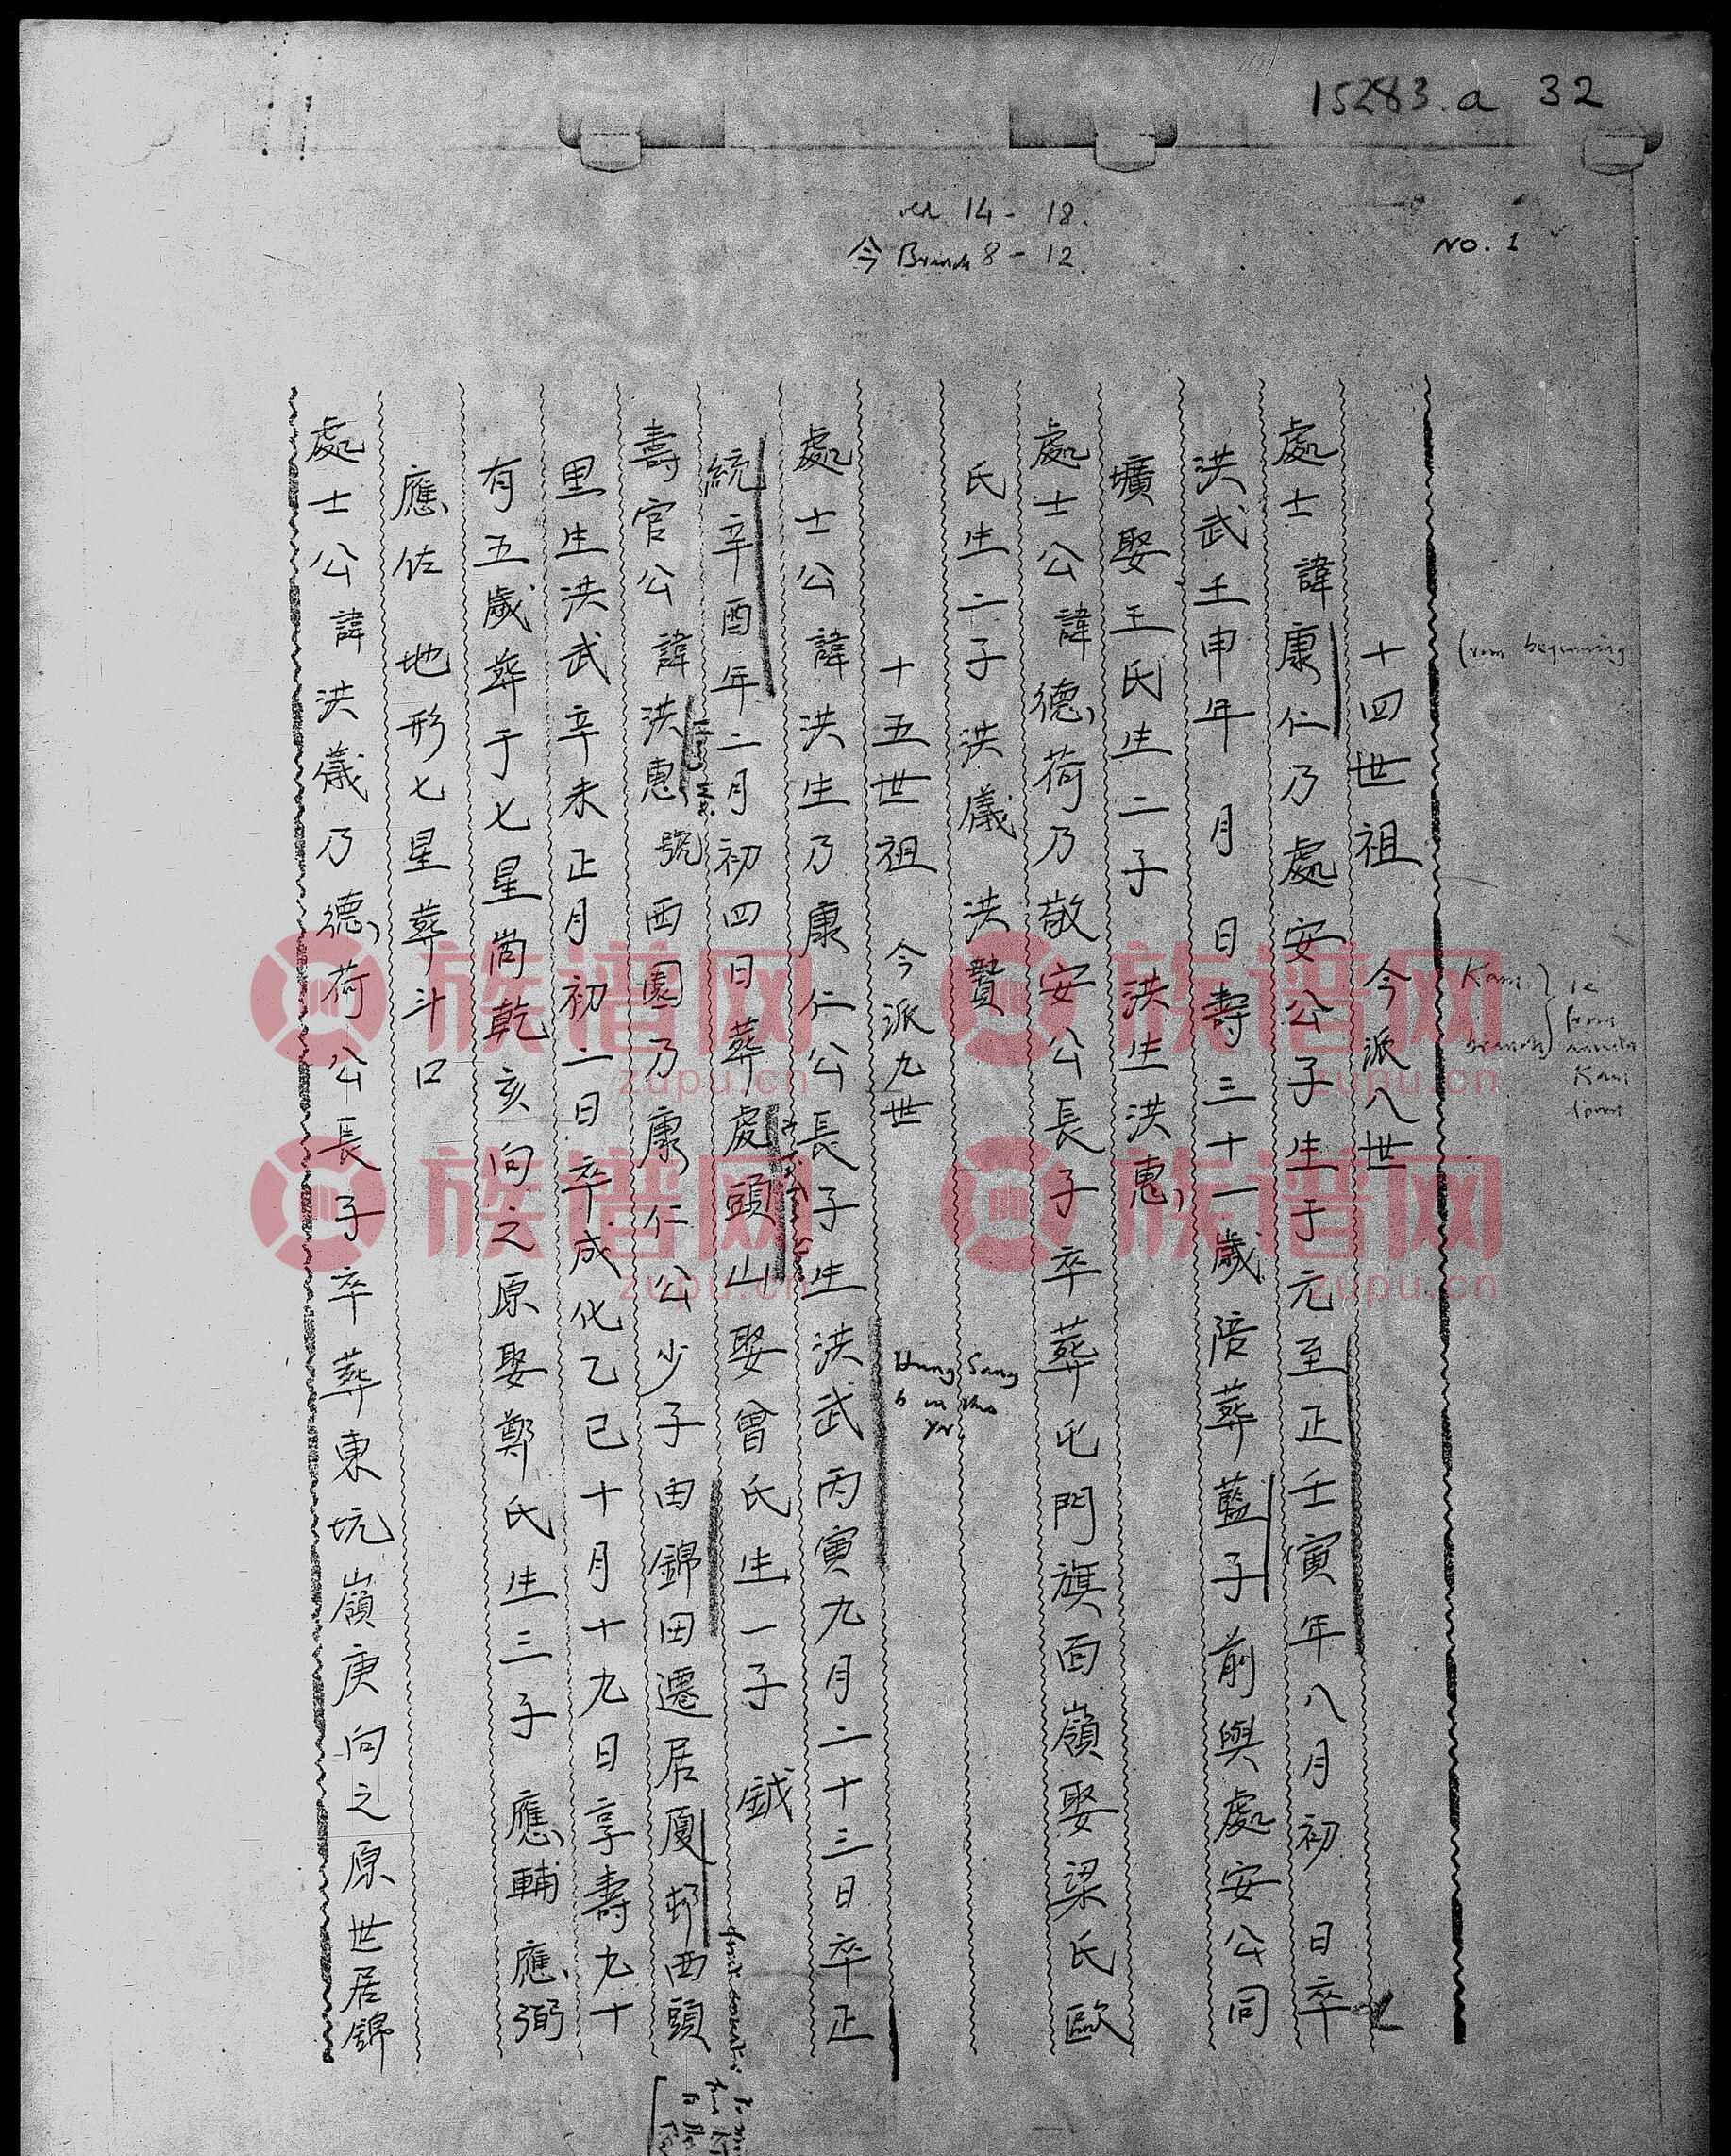 15283.a 32
14 - 18.
今 Branch 8 - 12.
NO. 1
(from beginning
十四世祖 今派八世
處士諱康仁乃處安公子生于元至正壬寅年八月初 日卒
洪武壬申年 月 日壽三十一歲陪葬藍子前與處安公同
壙娶王氏生二子 洪生洪惠
處士公諱德荷乃敬安公長子卒葬屯門旗面嶺娶梁氏歐
氏生二子 洪儀 洪贊
十五世祖 今派九世
處士公諱洪生乃康仁公長子生洪武丙寅九月二十三日卒正
統辛酉年二月初四日葬處頭山娶曾氏生一子 鉞
壽官公諱洪惠號西園乃康仁公少子由錦田遷居厦邨西頭
里生洪武辛未正月初二日卒成化乙巳十月十九日享壽九十
有五歲葬于七星崗乾亥向之原娶鄭氏生三子 應輔 應弼
應佐 地形七星葬斗口
處士公諱洪儀乃德荷公長子卒葬東坑嶺庚向之原世居錦
Kam branch
Kam
Hung Sang
b in this
yr.
族谱网
zupu.cn
族谱网
zupu.cn
族谱网
zupu.cn
族谱网
zupu.cn